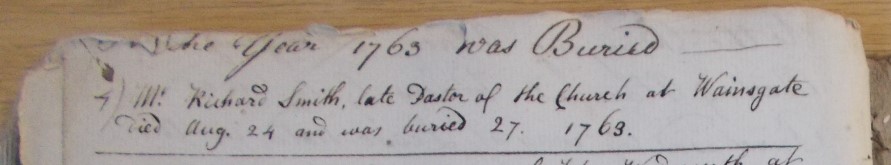 the Year 1763 was Buried
4) Mr. Richard Smith, late Pastor of the Church at Wainsgate
Died Aug. 24 and was buried 27. 1763.
at